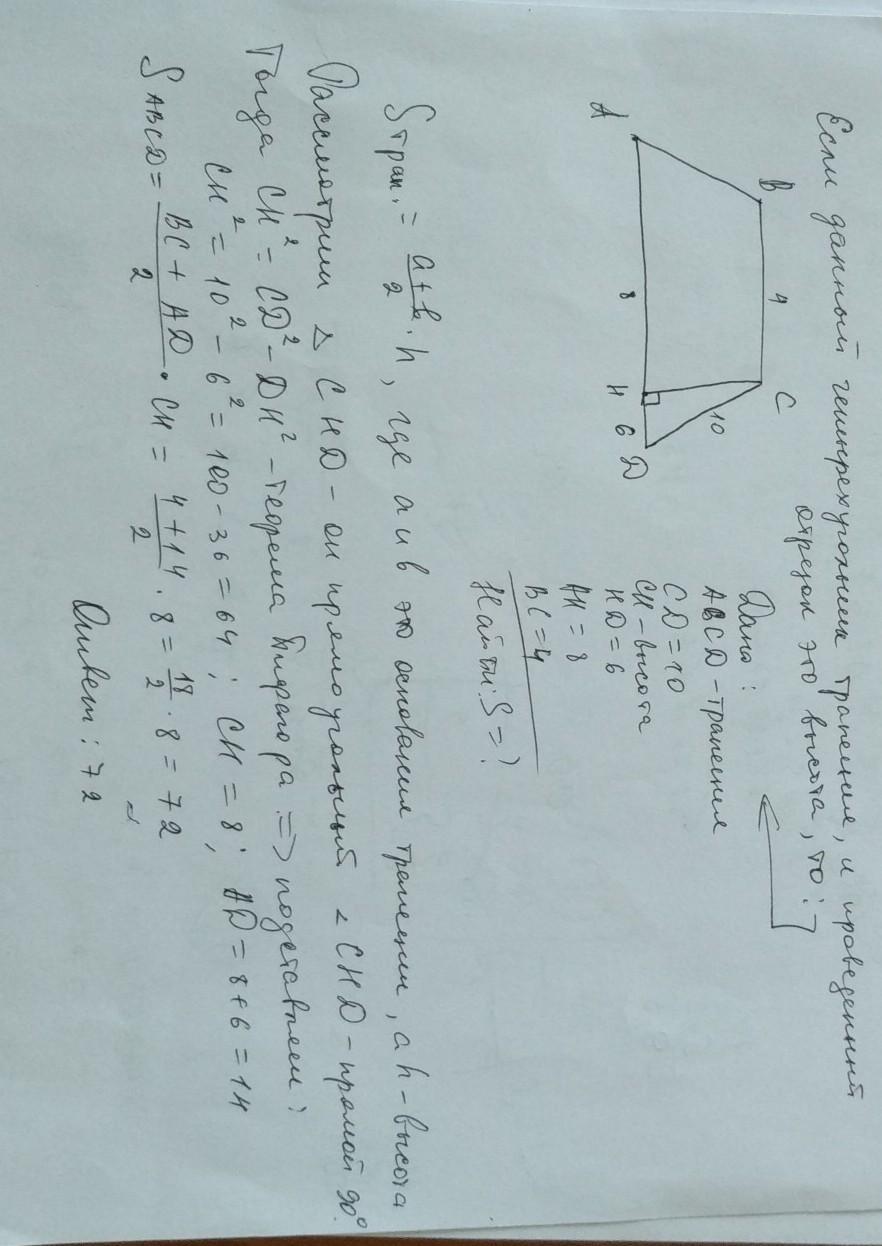 Если данный четырехугольник трапеция, и проведенный
отрезок это высота, то:
B 4 C
10
A 8 H 6 D
Дано:
ABCD - трапеция
CD = 10
CH - высота
HD = 6
AH = 8
BC = 4
Найти: S = ?
Sтрап. = a + b / 2 · h, где a и b это основания трапеции, а h - высота
Рассмотрим △ CHD - он прямоугольный < CHD - прямой 90°
Тогда CH² = CD² - DH² - теорема Пифагора => подставляем:
CH² = 10² - 6² = 100 - 36 = 64; CH = 8; AD = 8 + 6 = 14
S ABCD = BC + AD / 2 · CH = 4 + 14 / 2 · 8 = 18 / 2 · 8 = 72
Ответ: 72